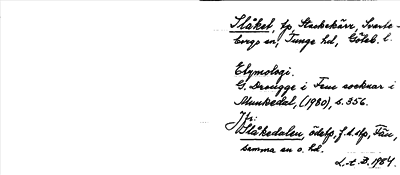 Slåket, tp Stockekärr, Svarte-
borgs sn, Tunge hd, Göteb. l.
Etymologi.
G. Drougge i Fem socknar i
Munkedal, (1980), s. 356.
Jfr:
Slåkedalen, ödetp, f.d. tp, Fån,
samma sn o. hd.
L. t. B. 1984.